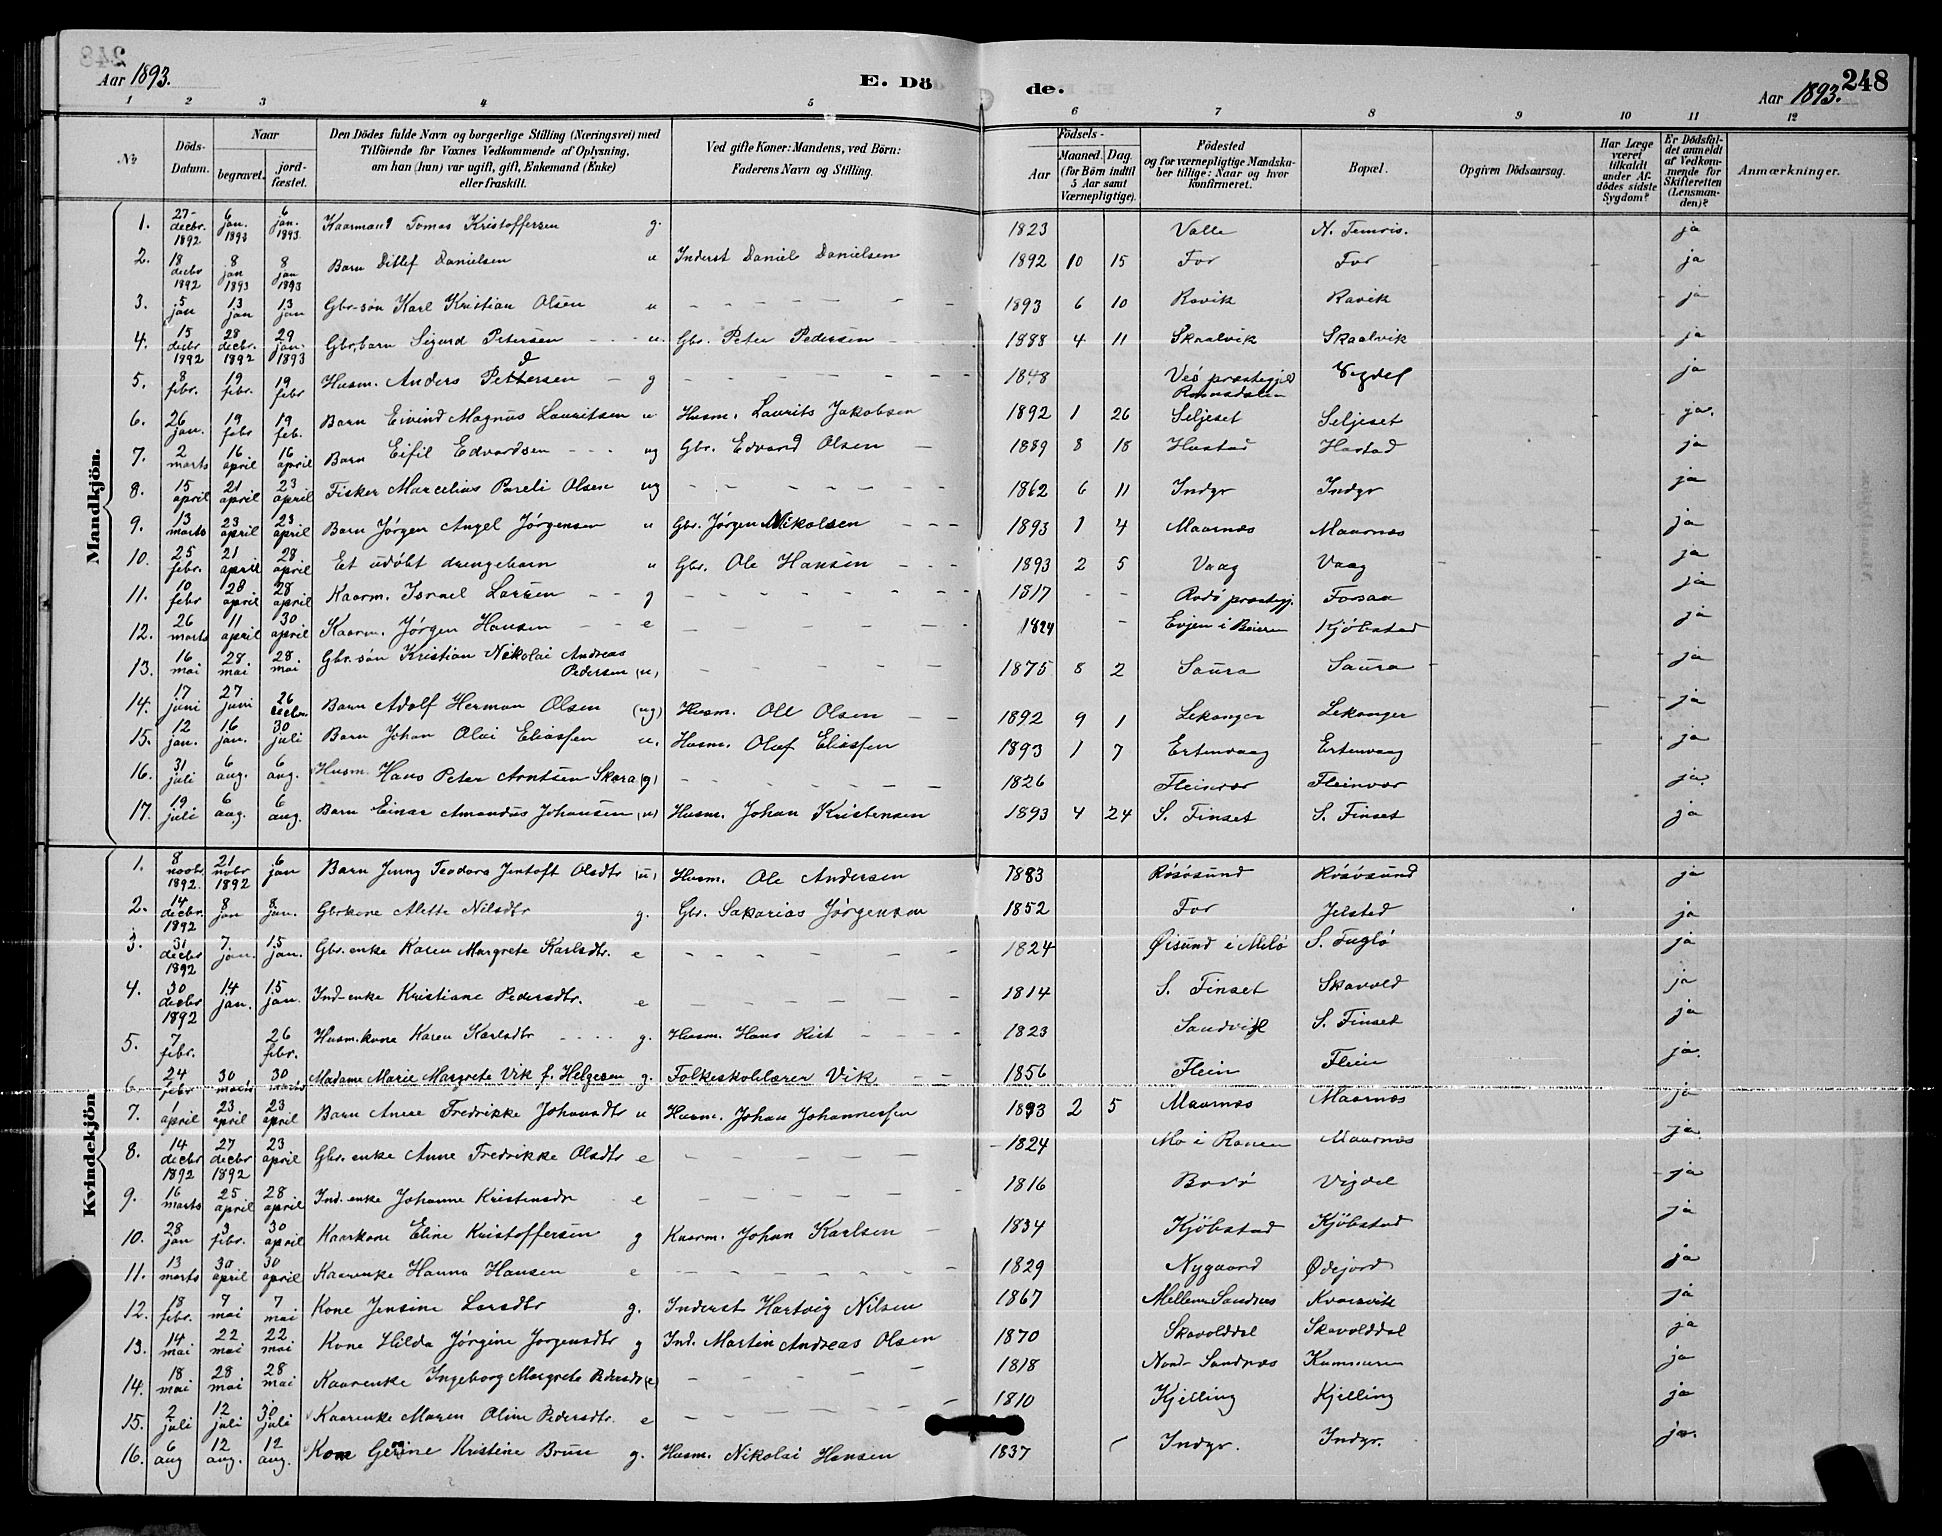 248
Aar 1893. E. Döde. Aar 1893.
1 2 3 4 5 6 7 8 9 10 11 12
No Döds-Datum. Naar begravet. jordfæstet. Den Dödes fulde Navn og borgerlige Stilling (Næringsvei) med Tilföiende for Voxnes Vedkommende af Oplysning, om han (hun) var ugift, gift, Enkemand (Enke) eller fraskilt. Ved gifte Koner: Mandens, ved Börn: Faderens Navn og Stilling. Födsels- Aar Maaned. Dag. (for Börn indtil 5 Aar samt Værnepligtige). Födested og for værnepligtige Mandskaber tillige: Naar og hvor konfirmeret. Bopæl. Opgiven Dödsaarsag. Har Læge været tilkaldt under Afdödes sidste Sygdom? Er Dödsfaldet anmeldt af Vedkommende for Skifteretten (Lensmanden)? Anmærkninger.
Mandkjön.
1. 27- decbr. 1892 6 jan. 1893 6 jan. 1893 Kaarmand Tomas Kristoffersen g. 1823 Valle N. ja
2. 18 decbr 1892 8 jan 1893 8 jan 1893 Barn Ditlef Danielsen u Inderst Daniel Danielsen 1892 10 15 For For ja
3. 5 jan 13 jan 13 jan Gbr-søn Karl Kristian Olsen u 1893 6 10 Ravik Ravik ja
4. 15 decbr 1892 28 decbr. 1892 29 jan. 1893 Gbr.barn Sigurd Petersen u. Gbr. Peter Pedersen 1888 4 11 Skaalvik Skaalvik ja
5. 8 febr. 19 febr. 19 febr Husm. Anders Pettersen g 1848 Veø præstegjeld Romsdalen ja
6. 26 jan. 19 febr 19 feb. Barn Eivind Magnus Lauritsen u Husm. Laurits Jakobsen 1892 1 26 Seljeset Seljeset ja.
7. 2 marts 16 april 16 april Barn Eifil Edvardsen ug Gbr. Edvard Olsen 1889 8 18 Hustad Hustad ja
8. 15 april 21 april 23 april Fisker Marcelius Pareli Olsen ug 1862 6 11 Indyr Indyr ja
9. 13 marts 23 april 23 april Barn Jørgen Angel Jørgensen u Gbr. Jørgen Nikolsen 1893 1 4 Maarnæs Maarnæs ja
10. 25 febr. 21 april 28 april Et udøbt drengebarn u Gbr. Ole Hansen 1893 2 5 Vaag Vaag ja
11. 10 febr 28 april 28 april Kaarm. Israel Larsen g 1817 Rødø præstegj. Forsaa ja
12. 26 marts 11 april 30 april Kaarm. Jørgen Hansen e 1824 Evjen i Beiern Kjøbstad ja
13. 16 mai 28 mai 28 mai Gbr-søn Kristian Nikolai Andreas
Pedersen (u) 1875 8 2 Saura Saura ja
14. 17 juni 27 juni 26 Barn Adolf Herman Olsen (ug) Husm. Ole Olsen 1892 9 1 Lekanger Lekanger ja
15. 12 jan. 16 jan. 30 juli Barn Johan Olai Eliassen u. Husm. Olaf Eliassen 1893 1 7 Ertenvaag Ertenvaag ja
16. 31 juli 6 aug. 6 aug. Husm. Hans Peter Arntsen Skara (g) 1826 Fleinvær Fleinvær ja.
17. 19 juli 6 aug. 6 aug. Barn Einar Amandus Johansen (u) Husm. Johan Kristensen 1893 4 24 S. Finset S. Finset ja
Kvindekjön
1. 8 novbr 1892. 21 nobr 1892 6 jan Barn Jenny Teodora Jentoft Olsdtr (u) Husm. Ole Andersen 1883 Røsøsund Røsøsund ja
2. 14 decbr. 1892 8 jan 8 jan. Gbrkone Alette Nilsdtr g. Gbr. Sakarias Jørgensen 1852 For Jelstad ja
3. 31 decbr 1892 7. jan. 15 jan. Gbr. enke Karen Margrete Karlsdtr. e 1824 Øisund i Melø S. Fuglø ja
4. 30 decbr 1892 14 jan. 15 jan. Ind-enke Kristiane Pedersdtr. e 1814 S. Finset Skavold ja
5. 7 febr. 26 febr. Husm.kone Karen Karlsdtr g. Husm. Hans Rist 1823 S. Finset ja
6. 24 febr 30 marts 30 marts Madame Marie Margrete Vik f. Helgesen g. Folkeskolelærer Vik 1856 Flein Flein ja.
7. 1 april 23 april 23 april Barn Anne Fredrikke Johansdtr u Husm. Johan Johannessen 1893 2 5 Maarnæs Maarnæs ja
8. 14 decbr 1892 27 decbr 1892 23 april Gbr. enke Anne Fredrikke Olsdtr e 1824 Mo i Ranen Maarnæs ja.
9. 16 marts 25 april 28 april Ind. enke Johanne Kristensdtr e 1816 Bodø Vigdel ja
10. 28 jan 3 febr. 30 april Kaarkone Eline Kristoffersen g Kaarm. Johan Karlsen 1834 Kjøbstad Kjøbstad ja
11. 13 marts 30 april 30 april Kaarenke Hanna Hansen e 1829 Nygaard Ødejord ja
12. 18 febr. 7 mai 7 mai Kone Jensine Larsdtr g. Inderst Hartvig Nilsen 1867 Mellem Sandnes Kvarsvik ja
13. 14 mai 22 mai 22 mai Kone Hilda Jørgine Jørgensdtr g Ind. Martin Andreas Olsen 1870 Skavolddal Skavolddal ja
14. 18 mai 28 mai 28 mai Kaarenke Ingeborg Margrete Pedersdtr (e) 1818 Nordr Sandnæs ja
15. 2 juli 12 juli 30 juli Kaarenke Maren Oline Pedersdtr. e 1810 Kjelling Kjelling ja
16. 6 aug 12 aug. 12 aug. Kone Gerine Kristine Bruse g. Husm. Nikolai Hansen 1837 Indyr. Indyr. ja.